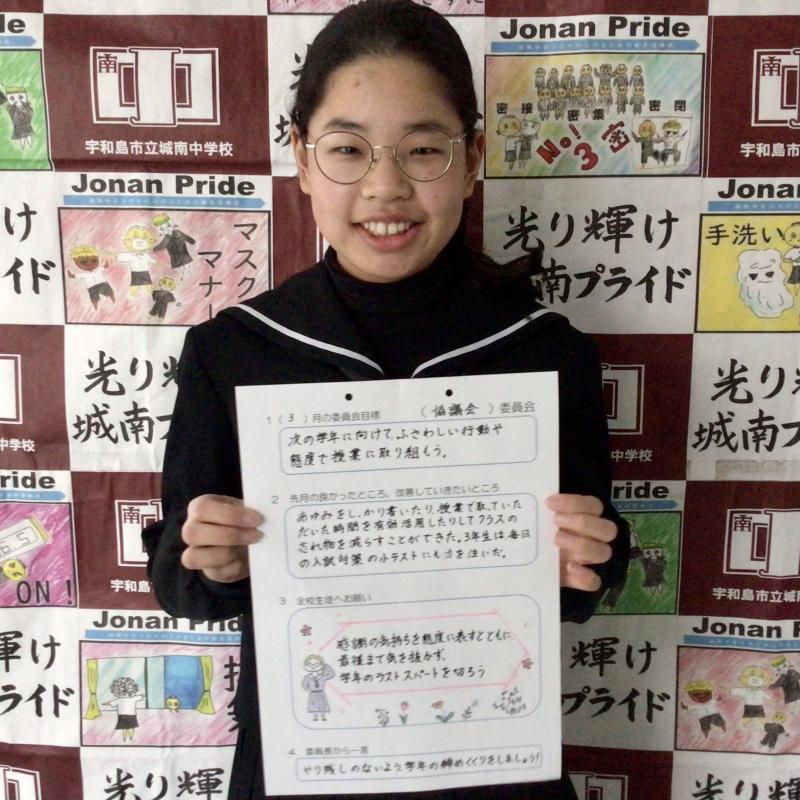 Jonan Pride
南
宇和島市立城南中学校
Jonan Pride
密接
密集
密閉
No! 3密
Jonan Pride
マスク
マナー
光り輝け
城南プライド
手洗い
光り輝け
城南プライド
1 ( 3 ) 月の委員会目標 ( 協議会 ) 委員会
次の学年に向けて、ふさわしい行動や
態度で授業に取り組もう。
2 先月の良かったところ、改善していきたいところ
あゆみをしっかり書いたり、授業で取っていた
だいた時間を有効活用したりしてクラスの
忘れ物を減らすことができた。3年生は、毎日
の入試対策の小テストにも力を注いだ。
3 全校生徒へお願い
感謝の気持ちを態度に表すとともに、
最後まで気を抜かず、
学年のラストスパートを切ろう
4 委員長から一言
やり残しのないよう、学年の締めくくりをしましょう!
Jonan Pride
ON!
宇和島市立城南中学校
Jonan Pride
輝け
プライド
光り輝け